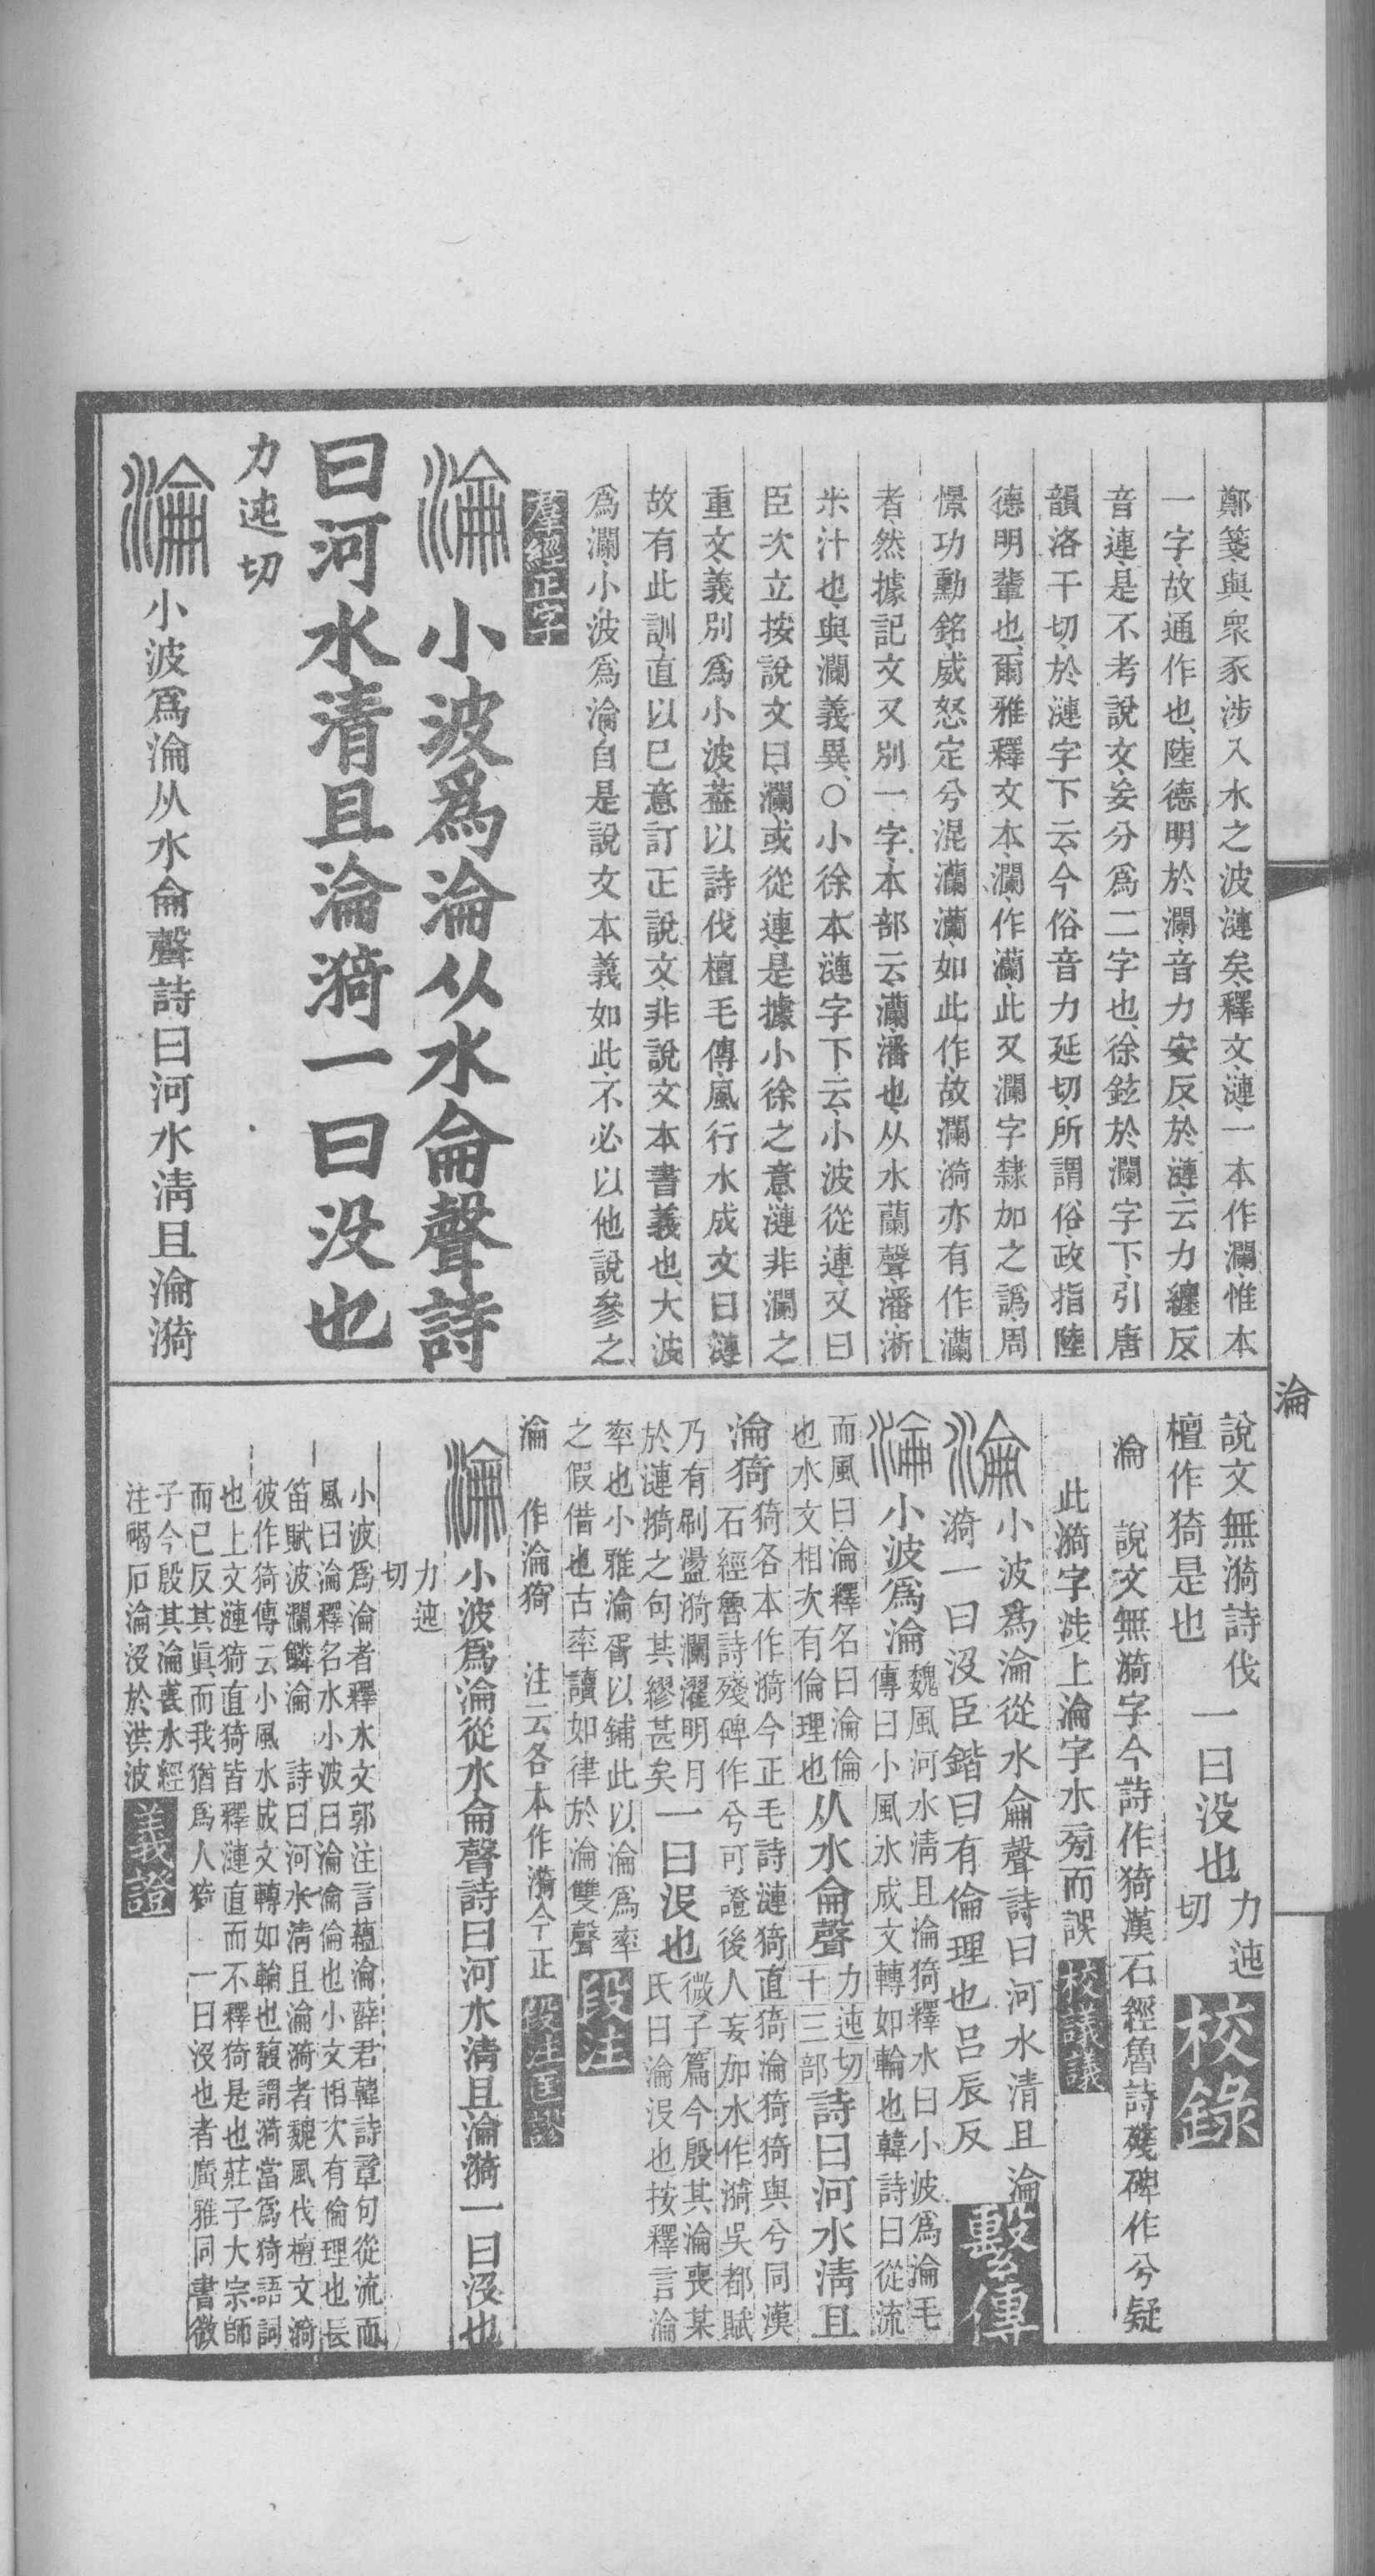 鄭箋與衆豕涉入水之波漣矣釋文漣一本作瀾惟本
一字故通作也陸德明於瀾音力安反於漣云力纏反
音連是不考說文妄分爲二字也徐鉉於瀾字下引唐
韻洛干切於漣字下云今俗音力延切所謂俗政指陸
德明輩也爾雅釋文本瀾作灡此又瀾字隸加之譌周
憬功勳銘威怒定兮混灡灡如此作故瀾漪亦有作灡
者然據記文又別一字本部云灡潘也从水蘭聲潘淅
米汁也與瀾義異○小徐本漣字下云小波從連又曰
臣次立按說文曰瀾或從連是據小徐之意漣非瀾之
重文義別爲小波葢以詩伐檀毛傳風行水成文曰漣
故有此訓直以已意訂正說文非說文本書義也大波
爲瀾小波爲淪自是說文本義如此不必以他說參之
羣經正字
淪 小波爲淪从水侖聲詩
曰河水清且淪漪一曰没也
力迍切
淪 小波爲淪从水侖聲詩曰河水淸且淪漪
淪
說文無漪詩伐
檀作猗是也
一曰没也
力迍
切
校錄
淪 說文無漪字今詩作猗漢石經魯詩殘碑作兮疑
此漪字涉上淪字水旁而誤
校議議
淪 小波爲淪從水侖聲詩曰河水清且淪
漪一曰沒臣鍇曰有倫理也呂辰反
繫傳
淪 小波爲淪
魏風河水淸且淪猗釋水曰小波爲淪毛
傳曰小風水成文轉如輪也韓詩曰從流
而風曰淪釋名曰淪倫
也水文相次有倫理也
从水侖聲
力迍切
十三部
詩曰河水淸且
淪猗
猗各本作漪今正毛詩漣猗直猗淪猗猗與兮同漢
石經魯詩殘碑作兮可證後人妄加水作漪吳都賦
乃有刷盪漪瀾濯明月
於漣漪之句其繆甚矣
一曰沒也
微子篇今殷其淪喪某
氏曰淪沒也按釋言淪
率也小雅淪胥以鋪此以淪爲率
之假借也古率讀如律於淪雙聲
段注
淪 作淪猗 注云各本作漪今正
段注匡謬
淪 小波爲淪從水侖聲詩曰河水清且淪漪一曰沒也
力迍
切
小波爲淪者釋水文郭注言蘊淪薛君韓詩章句從流而
風曰淪釋名水小波曰淪淪倫也小文相次有倫理也長
笛賦波瀾鱗淪 詩曰河水清且淪漪者魏風伐檀文漪
彼作猗傳云小風水成文轉如輪也馥謂漪當爲猗語詞
也上文漣猗直猗皆釋漣直而不釋猗是也莊子大宗師
而已反其眞而我猶爲人猗 一曰沒也者廣雅同書微
子今殷其淪喪水經
注碣石淪沒於洪波
義證